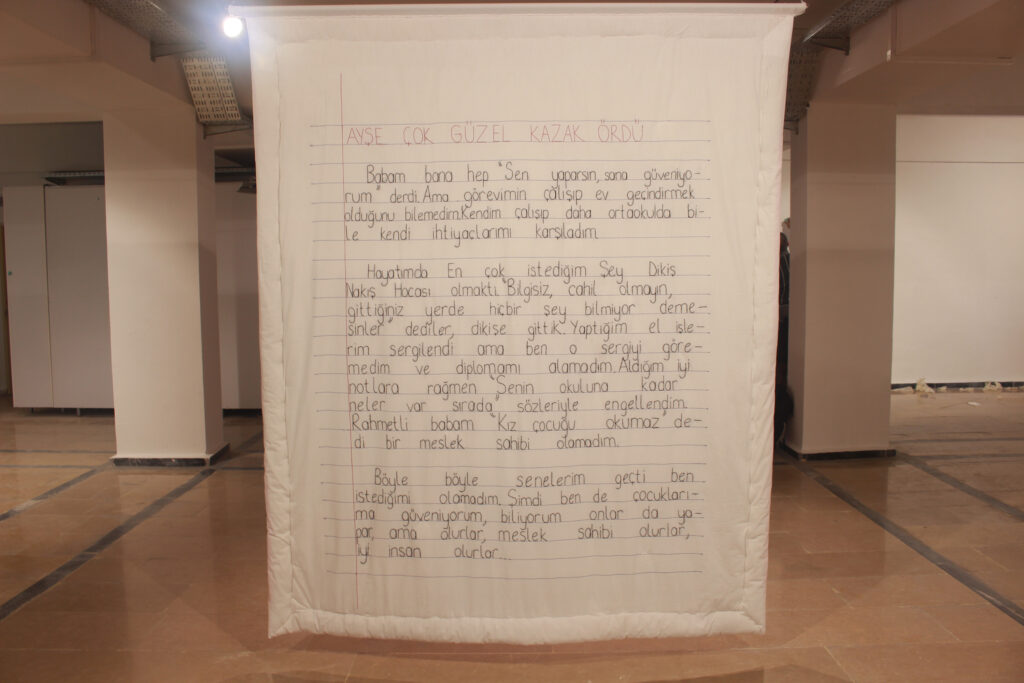 AYŞE ÇOK GÜZEL KAZAK ÖRDÜ
Babam bana hep "Sen yaparsın, sana güveniyo-
rum" derdi. Ama görevimin çalışıp ev geçindirmek
olduğunu bilemedim. Kendim çalışıp daha ortaokulda bi-
le kendi ihtiyaçlarımı karşıladım.
Hayatımda En çok istediğim Şey Dikiş
Nakış Hocası olmaktı. "Bilgisiz, cahil olmayın,
gittiğiniz yerde hiçbir şey bilmiyor deme-
sinler" dediler, dikişe gittik. Yaptığım el işle-
rim sergilendi ama ben o sergiyi göre-
medim ve diplomamı alamadım. Aldığım iyi
notlara rağmen "Senin okuluna kadar
neler var sırada" sözleriyle engellendim.
Rahmetli babam "Kız çocuğu okumaz" de-
di bir meslek sahibi olamadım.
Böyle böyle senelerim geçti ben
istediğimi olamadım. Şimdi ben de çocukları-
ma güveniyorum, biliyorum onlar da ya-
par, ama olurlar, meslek sahibi olurlar,
iyi insan olurlar...